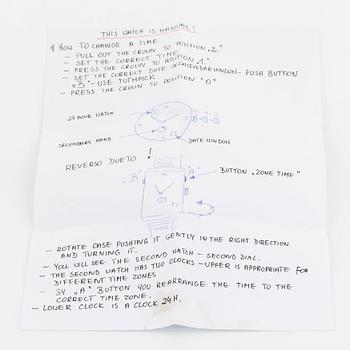 THIS WATCH IS MANUAL!
HOW TO CHANGE A TIME
- PULL OUT THE CROWN TO POSITION "2"
- SET THE CORRECT TIME
- PRESS THE CROWN TO POSITION "1"
- SET THE CORRECT DATE IN CALENDAR WINDOW - PUSH BUTTON
"B" - USE TUTHPICK
- PRESS THE CROWN TO POSITION "0"
24 HOUR WATCH
SECONDARY HAND
DATE WINDOW
REVERSO DUETO !
"B"
"A"
BUTTON "ZONE TIME"
- ROTATE CASE PUSHING IT GENTLY IN THE RIGHT DIRECTION
AND TURNING IT.
- YOU WILL SEE THE SECOND WATCH - SECOND DIAL.
- THE SECOND WATCH HAS TWO CLOCKS - UPPER IS APPROPRIATE FOR
DIFFERENT TIME ZONES
- BY "A" BUTTON YOU REARRANGE THE TIME TO THE
CORRECT TIME ZONE.
- LOWER CLOCK IS A CLOCK 24H.